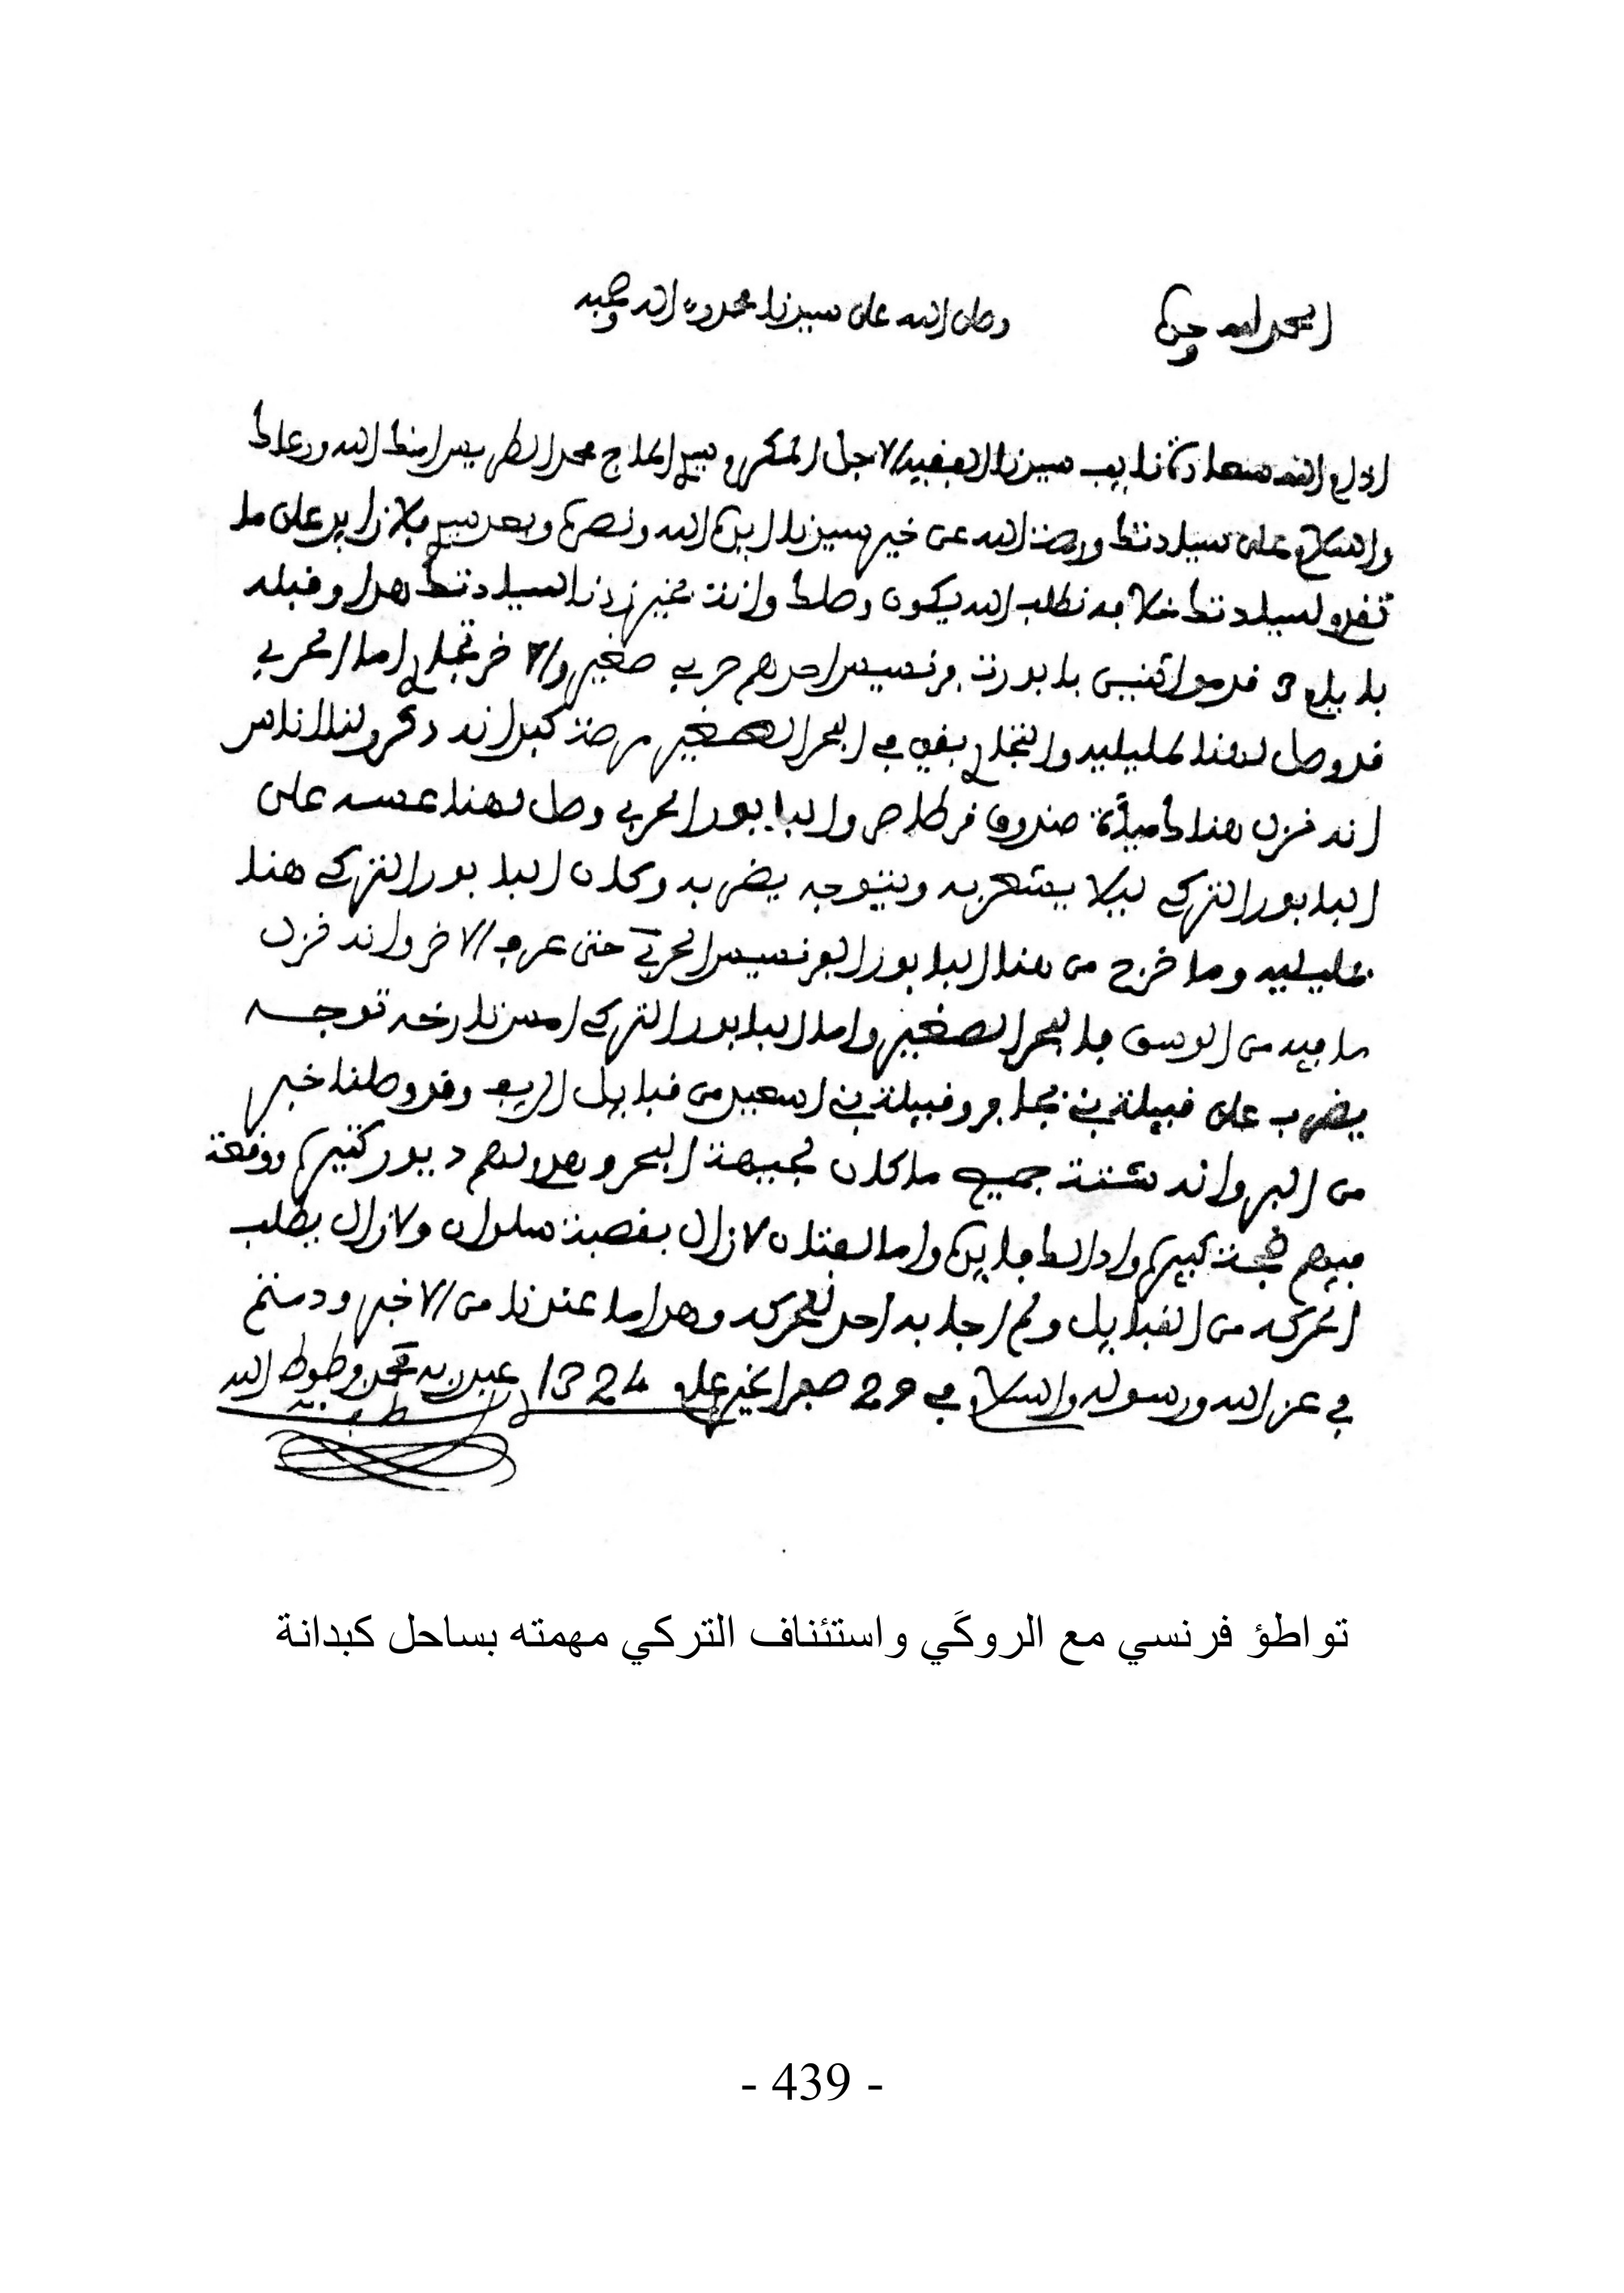 الحمد لله وحده
وصلى الله على سيدنا محمد وءاله وصحبه
ادام الله سعادة نايب سيدنا الفقيه الاجل سي الحاج محمد الطريس امنك الله ورعاك
والسلام على سيادتك ورحمة الله عن خير سيدنا ايده الله ونصره وبعد سيدي فلا زايد على ما
تقدم لسيادتك خلافه نطلب الله يكون وصلك وانت بخير زدنا لسيادتك هذا وقبله
3 قدموا بابورت فرنسيس احدهم حربي صغير والاخر تجاري اما الحربي
قد وصل لهنا لمليلية والتجاري بقي في البحر الصغير مرصة كبدانه ذكروا لنا الناس
انه نزل هنا صندوق قرطاص والبابور الحربي وصل لهنا عسه على
البابور التركي ليلا يشعر به ويتوجه يضربه وكان البابور التركي هنا
بمليلية وما خرج من هنا البابور الفرنسيس الحربي حتى عرف الاخر وانه نزل
ما فيه من الوسق فالبحر الصغير واما البابور التركي امس تارخه توجه
يضرب على قبيلة بني وقبيلة بني اسعيد من قبايل الريف وقد وصلنا خبر
من البر وانه شتتة جميع ما كان لجيهة البحر وهدم لهم ديور كثيرة ووقعة
فيهم كبيرة واما الفتان لازال بقصبة سلوان ولازال يطلب
الحركه من القبايل ولم اجابه احد للحركه وهذا ما عندنا من الاخبر ودمتم
في عز الله ورسوله والسلام في 29 صفر الخير عام 1324 عبد ربه الله
تواطؤ فرنسي مع الروكَي واستئناف التركي مهمته بساحل كبدانة
- 439 -